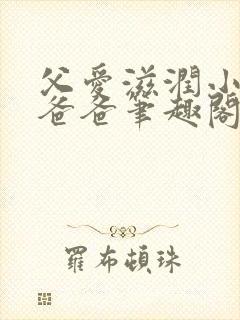 父愛滋潤小
爸爸筆趣閣
羅布頓珠